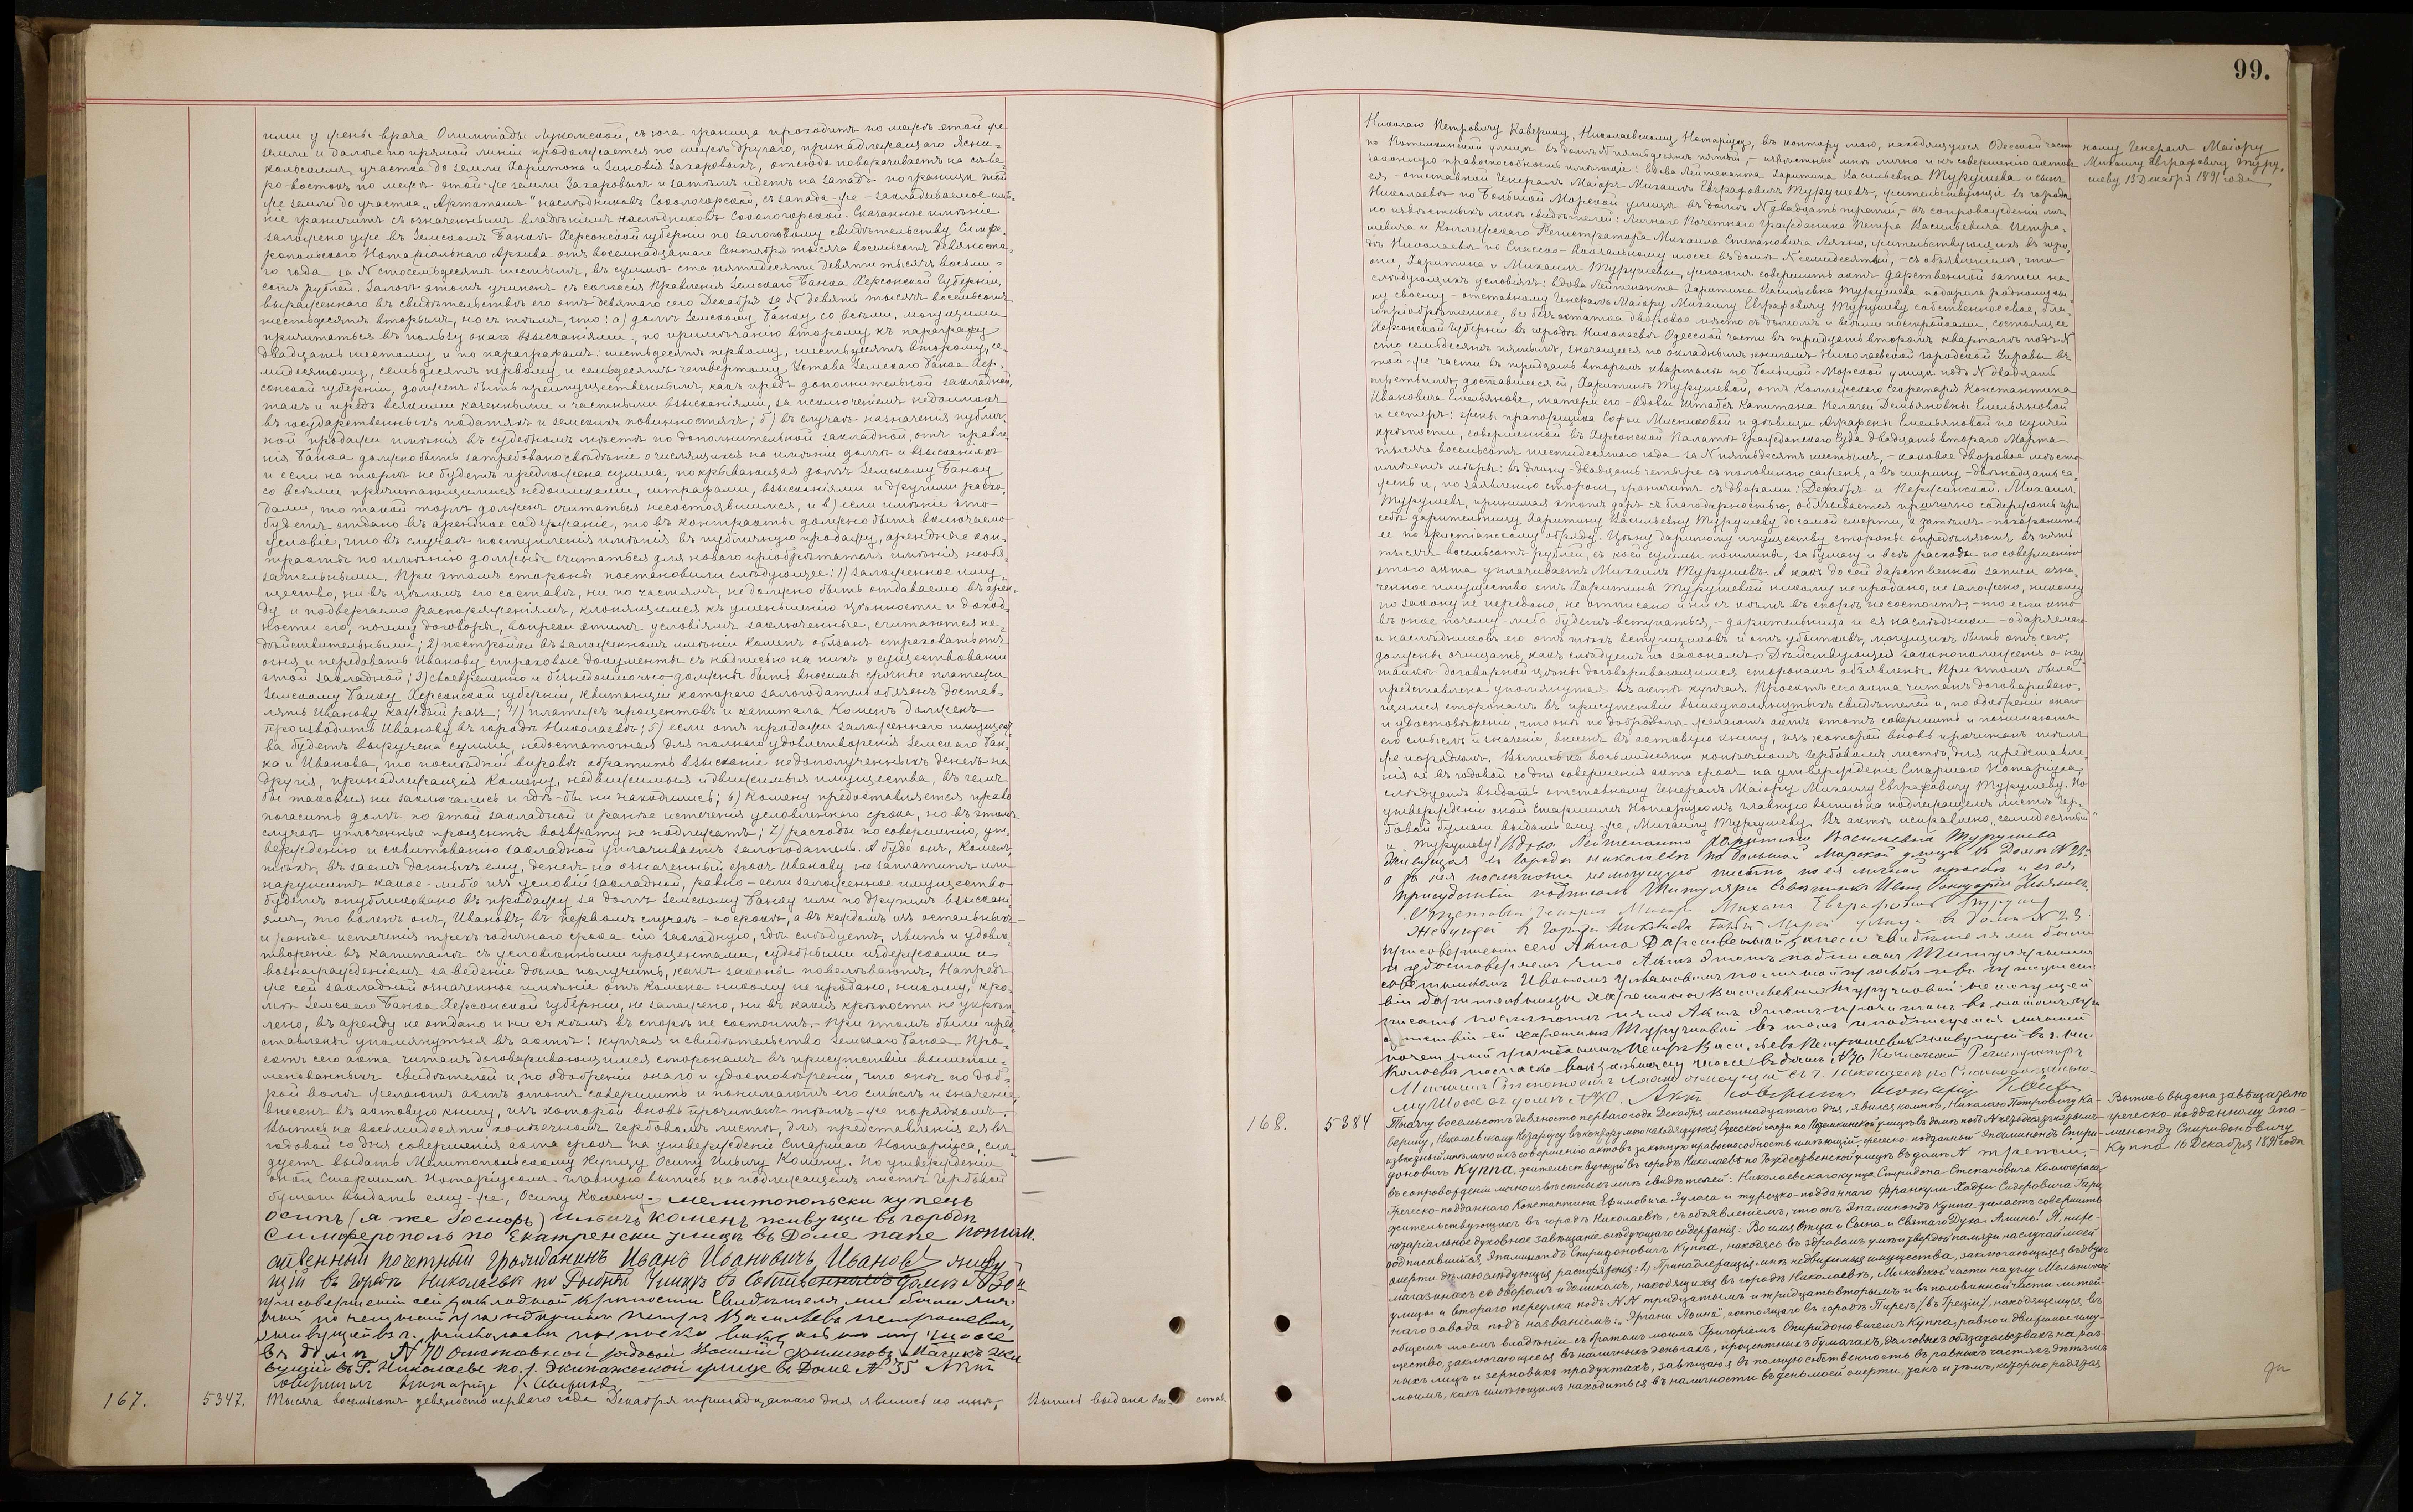 99.
или у жены врача Олимпіады Луканской, съ юга граница проходитъ по межѣ этой же
земли и далѣе по прямой линіи продолжается по межѣ другаго, принадлежащаго
участка до земли Харитона и Зиновія Захаровыхъ, отсюда поворачиваетъ на сѣве-
ро-востокъ по межѣ этой-же земли Захаровыхъ и затѣмъ идетъ на западъ по границѣ той
же земли до участка „Артаташъ" наслѣдниковъ Сокологорской, съ запада-же-закладываемое имѣ-
ніе граничитъ съ означеннымъ владѣніемъ наслѣдниковъ Сокологорской. Сказанное имѣніе
заложено уже въ Земскомъ Банкѣ Херсонской губерніи по залоговому свидѣтельству Симфе-
ропольскаго Нотаріальнаго Архива отъ восемнадцатаго Сентября тысяча восемьсотъ девяноста-
го года за N стосемьдесятъ шестымъ, въ суммѣ ста пятидесяти девяти тысячъ восьми-
сотъ рублей. Залогъ этотъ учиненъ съ согласія Правленія Земскаго Банка Херсонской Губерніи,
выраженнаго въ свидѣтельствѣ его отъ девятаго сего Декабря за N девять тысячъ восемьсотъ
шестьдесятъ вторымъ, но съ тѣмъ, что: а) долгъ Земскому Банку со всѣми, могущими
причитаться въ пользу онаго взысканіями, по примѣчанію второму къ параграфу
двадцать шестому и по параграфамъ: шестьдесятъ первому, шестьдесятъ второму, се-
мидесятому, семьдесятъ первому и семьдесятъ четвертому Устава Земскаго Банка Хер-
сонской губерніи, долженъ быть преимущественнымъ, какъ предъ дополнительной закладной,
такъ и предъ всякими казенными и частными взысканіями, за исключеніемъ недоимокъ
въ государственныхъ податяхъ и земскихъ повинностяхъ; б) въ случаѣ назначенія публич-
ной продажи имѣнія въ судебномъ мѣстѣ по дополнительной закладной, отъ правле-
нія Банка должно быть затребовано свѣдѣніе о числящихся на имѣніи долгѣ и взысканіяхъ
и если на торгѣ не будетъ предложена сумма, покрывающая долгъ Земскому Банку
со всѣми причитающимися недоимками, штрафами, взысканіями и другими расхо-
дами, то такой торгъ долженъ считаться несостоявшимся, и в) если имѣніе это
будетъ отдано въ арендное содержаніе, то въ контракты должно быть включаемо
условіе, что въ случаѣ поступленія имѣнія въ публичную продажу, арендные кон-
тракты по имѣнію должны считаться для новаго пріобрѣтателя имѣнія необя-
зательными. При этомъ стороны постановили слѣдующее: 1) заложенное иму-
щество, ни въ цѣломъ его составѣ, ни по частямъ, не должно быть отдаваемо въ арен-
ду и подвергаемо распоряженіямъ, клонящимся къ уменьшенію цѣнности и доход-
ности его, почему договоры, вопреки этимъ условіямъ заключенные, считаются не-
дѣйствительными; 2) постройки въ заложенномъ имѣніи Коменъ обязанъ страховать отъ
огня и передавать Иванову страховые документы съ надписью на нихъ о существованіи
этой закладной; 3) своевременно и безнедоимочно должны быть вносимы срочные платежи
Земскому Банку Херсонской губерніи, квитанціи котораго залогодатель обязанъ достав-
лять Иванову каждый разъ; 4) платежъ процентовъ и капитала Коменъ долженъ
производить Иванову въ городѣ Николаевѣ; 5) если отъ продажи заложеннаго имущест-
ва будетъ выручена сумма, недостаточная для полнаго удовлетворенія Земскаго Бан-
ка и Иванова, то послѣдній вправѣ обратить взысканіе недополученныхъ денегъ на
другія, принадлежащія Комену, недвижимыя и движимыя имущества, въ чемъ
бы таковыя ни заключались и гдѣ-бы ни находились; 6) Комену предоставляется право
погасить долгъ по этой закладной и ранѣе истеченія условленнаго срока, но въ этомъ
случаѣ уплоченные проценты возврату не подлежатъ; 7) расходы по совершенію, ут-
вержденію и квитованію закладной уплачиваетъ залогодатель. А буде онъ, Коменъ,
тѣхъ, въ заемъ данныхъ ему, денегъ на означенный срокъ Иванову не заплатитъ или
нарушитъ какое-либо изъ условій закладной, равно-если заложенное имущество
будетъ опубликовано въ продажу за долгъ Земскому Банку или по другимъ взыскані-
ямъ, то воленъ онъ, Ивановъ, въ первомъ случаѣ-по срокѣ, а въ каждомъ изъ остальныхъ-
и ранѣе истеченія трехъ годичнаго срока сію закладную, гдѣ слѣдуетъ, явить и удовле-
твореніе въ капиталѣ съ условленными процентами, судебными издержками и
вознагражденіемъ за веденіе дѣла получить, какъ законы повелѣваютъ. Напредъ
же сей закладной означенное имѣніе отъ Комена никому не продано, никому, кро-
мѣ Земскаго Банка Херсонской губерніи, не заложено, ни въ какія крѣпости не укрѣп-
лено, въ аренду не отдано и ни съ кѣмъ въ спорѣ не состоитъ. При этомъ были пред-
ставлены упомянутыя въ актѣ: купчая и свидѣтельство Земскаго Банка. Про-
ектъ сего акта читанъ договаривающимся сторонамъ въ присутствіи вышепои-
менованныхъ свидѣтелей и, по одобреніи онаго и удостовѣреніи, что онѣ по доб-
рой волѣ желаютъ актъ этотъ совершить и понимаютъ его смыслъ и значеніе,
внесенъ въ актовую книгу, изъ которой вновь прочитанъ тѣмъ-же порядкомъ.
Выпись на восьмидесяти копѣечномъ гербовомъ листѣ, для представленія ея въ
годовой со дня совершенія акта срокъ на утвержденіе Старшаго Нотаріуса, слѣ-
дуетъ выдать Мелитопольскому Купцу Осипу Ильичу Комену. По утвержденіи
оной Старшимъ Нотаріусомъ главную выпись на подлежащемъ листѣ Гербовой
бумаги выдать ему-же, Осипу Комену. Мелитопольски купець
Осипъ (я же Іосифъ) Ильичъ Коменъ живущи въ городѣ
Симферополь по Екатренски улицѣ въ Доме папе Потом.
ственный почетный гражданинъ Иванъ Ивановичъ Ивановъ живу
щій въ городѣ Николаевѣ по Рыбной Улицѣ въ Собственномъ домѣ №
при совершеніи сей закладной крѣпости Свидѣтелями были лич-
ный почетный гражданинъ Петръ Васильевъ Петрашевичъ,
живущей въ г. Николаеви поспаско вакзальному шоссе
въ домѣ N 70 Отставной рядовой Василій Филиповъ Мацикъ жи
вущій въ Г. Николаеве по 1. Экипажеской улице въ Доме № 35 Актъ
совершилъ Нотаріусъ Н Каверинъ
167. 5347. Тысяча восемьсотъ девяносто перваго года Декабря тринадцатаго дня явились ко мнѣ, Выпись выдана отстав-
Николаю Петровичу Каверину, Николаевскому Нотаріусу, въ контору мою, находящуюся Одесской части
по Потемкинской улицѣ въ домѣ N пятьдесятъ пятый,- извѣстные мнѣ лично и къ совершенію актовъ
законную правоспособность имѣющіе: вдова Лейтенанта Харитина Васильевна Турушева и сынъ
ея-отставной Генералъ Маіоръ Михаилъ Евграфовичъ Турушевъ, жительствующіе въ городѣ
Николаевѣ по Большой Морской улицѣ въ домѣ N двадцать третій,-въ сопровожденіи лич-
но извѣстныхъ мнѣ свидѣтелей: Личнаго Почетнаго Гражданина Петра Васильевича Петра-
шевича и Коллежскаго Регистратора Михаила Степановича Ляхно, жительствующихъ въ горо-
дѣ Николаевѣ по Спасско-Вокзальному шоссе въ домѣ N семидесятый,-съ объявленіемъ, что
они, Харитина и Михаилъ Турушевы, желаютъ совершить актъ дарственной записи на
слѣдующихъ условіяхъ: вдова Лейтенанта Харитина Васильевна Турушева подарила родному сы-
ну своему-отставному Генералъ Маіору Михаилу Евграфовичу Турушеву собственное свое, бла-
гопріобрѣтенное, все безъ остатка дворовое мѣсто съ домомъ и всѣми постройками, состоящее
Херсонской Губерніи въ городѣ Николаевѣ Одесской части въ тридцать второмъ кварталѣ подъ N
сто семьдесятъ пятымъ, значащееся по окладнымъ книгамъ Николаевской Городской Управы въ
той-же части въ тридцать второмъ кварталѣ по Большой-Морской улицѣ подъ N двадцать
третьимъ, доставшееся ей, Харитинѣ Турушевой, отъ Коллежскаго Секретаря Константина
Ивановича Емельянова, матери его-вдовы Штабсъ Капитана Пелагеи Демьяновны Емельяновой
и сестеръ: жены прапорщика Софьи Мисниковой и дѣвицы Аграфены Емельяновой по купчей
крѣпости, совершенной въ Херсонской Палатѣ Гражданскаго Суда двадцать втораго Марта
тысяча восемьсотъ шестидесятаго года за N пятьдесятъ шестымъ,-каковое дворовое мѣсто
имѣетъ мѣры: въ длину-двадцать четыре съ половиною сажень, а въ ширину-двѣнадцать са-
жень и, по заявленію сторонъ, граничитъ съ дворами: Декабря и Пержинской. Михаилъ
Турушевъ, принимая этотъ даръ съ благодарностью, обязывается прилично содержать при
себѣ дарительницу Харитину Васильевну Турушеву до самой смерти, а затѣмъ-похоронить
ее по христіанскому обряду. Цѣну даримому имуществу стороны опредѣляютъ въ пять
тысячъ восемьсотъ рублей, съ коей суммы пошлины, за бумагу и всѣ расходы по совершенію
этого акта уплачиваетъ Михаилъ Турушевъ. А какъ до сей дарственной записи озна-
ченное имущество отъ Харитины Турушевой никому не продано, не заложено, никому
по закону не передано, не отписано и ни съ кѣмъ въ спорѣ не состоитъ,-то если кто
въ оное почему-либо будетъ вступаться,-дарительница и ея наслѣдники-одаряемаго
и наслѣдниковъ его отъ тѣхъ вступщиковъ и отъ убытковъ, могущихъ быть отъ сего,
должны очищать, какъ слѣдуетъ по законамъ. Дѣйствующія законоположенія о неу-
тайкѣ договорной цѣны договаривающимся сторонамъ объявлены. При этомъ была
представлена упомянутая въ актѣ купчая. Проектъ сего акта читанъ договариваю-
щимся сторонамъ въ присутствіи вышеупомянутыхъ свидѣтелей и, по одобреніи онаго
и удостовѣреніи, что онѣ по доброй волѣ желаютъ актъ этотъ совершить и понимаютъ
его смыслъ и значеніе, внесенъ въ актовую книгу, изъ которой вновь прочитанъ тѣмъ-
же порядкомъ. Выпись на восьмидесяти копѣечномъ Гербовомъ листѣ, для представле-
нія ея въ годовой со дня совершенія акта срокъ на утвержденіе Старшаго Нотаріуса,
слѣдуетъ выдать отставному Генералъ Маіору Михаилу Евграфовичу Турушеву. По
утвержденіи оной Старшимъ Нотаріусомъ главную выпись на подлежащемъ листѣ Гер-
бовой бумаги выдать ему-же, Михаилу Турушеву. Въ актѣ исправлено „семидесятый"
и „Турушеву". Вдова Лейтенанта Харитина Васильевна Турушева
живущая въ городѣ Николаевѣ по большой Морской улицѣ въ Домѣ № 23
а за нея по слѣпотѣ не могущую писать по ея личной просьбѣ и въ ея
присудствіи подписалъ Титулярн Совѣтникъ Иванъ
Отставной Генералъ Маіоръ Михаилъ Евграфовичъ Турушевъ
Живущій въ городѣ Николаевѣ Большой Морской улицѣ въ домѣ № 23.
При совершеніи сего Акта Дарственной записи свидѣтелями были
и удостоверяемъ что Актъ Этотъ подписалъ Титулярнымъ
совѣтникомъ Иваномъ по личной просьбѣ и въ присутст
віи дарительницы Харитины Васильевны Турушевой не могущей
писать послѣпотѣ и что Актъ Этотъ прочитанъ
ей Харитинѣ Турушевой въ томъ и подписуемся личный
почетный гражданинъ Петръ Васильевъ Петрашевичъ живущей въ г. Ни
колаевѣ поспаско вокзальному шоссе въ домѣ №70 Колежскій Регистраторъ
Михаилъ Степановичъ Ляхно живущій въ г. Николаевѣ по Спаско вокзально-
му Шоссе въ домѣ №70. Актъ совершилъ Нотаріусъ Н Каверинъ
ному Генералъ Маіору
Михаилу Евграфовичу Туру-
шеву 13 Декабря 1891 года
168. 5384 Тысячу восемьсотъ девяносто перваго года Декабря шестнадцатаго дня, явился ко мнѣ, Николаю Петровичу Ка-
верину, Николаевскому Нотаріусу въ контору мою находящуюся Одесской части по Потемкинской улицѣ въ домѣ подъ N пятьдесятъ пятымъ-
извѣстный мнѣ лично и къ совершенію актовъ законную правоспособность имѣющій-греческо-подданный Эпаминондъ Спири-
доновичъ Куппа, жительствующій въ городѣ Николаевѣ по Рождественской улицѣ въ домѣ N третій,-
въ сопровожденіи лично извѣстныхъ мнѣ свидѣтелей: Николаевскаго купца Спиридона Степановича
Греческо-подданнаго Константина Ефимовича Зуласа и турецко-подданнаго Франгули Хаджи Сидеровича Гари,
жительствующихъ въ городѣ Николаевѣ, съ объявленіемъ, что онъ Эпаминондъ Куппа желаетъ совершить
нотаріальное духовное завѣщаніе слѣдующаго содержанія: Во имя Отца и Сына и Святаго Духа. Аминь! Я, ниже-
подписавшійся, Эпаминондъ Спиридоновичъ Куппа, находясь въ здравомъ умѣ и твердой памяти на случай моей
смерти дѣлаю слѣдующія распоряженія: 1) Принадлежащія мнѣ недвижимыя имущества, заключающіяся въ двухъ
магазинахъ съ дворомъ и домикомъ, находящихся въ городѣ Николаевѣ, Московской части на углу Мельничной
улицы и втораго переулка подъ NN тридцатымъ и тридцать вторымъ и въ половинной части литей-
наго завода подъ названіемъ: „Эргани Аѳина", состоящаго въ городѣ Пиреѣ /въ Греціи/, находящемуся въ
общемъ моемъ владѣніи съ братомъ моимъ Григоріемъ Спиридоновичемъ Куппа, равно и движимое иму-
щество, заключающееся въ наличныхъ деньгахъ, процентныхъ бумагахъ, долговыхъ обязательствахъ на раз-
ныхъ лицъ и зерновыхъ продуктахъ, завѣщаю я въ полную собственность въ равныхъ частяхъ дѣтямъ
моимъ, какъ имѣющимъ находиться въ наличности въ день моей смерти, такъ и тѣмъ, которые родятся
Выпись выдана завѣщателю
греческо-подданному Эпа-
минонду Спиридоновичу
Куппа 16 Декабря 1891 года